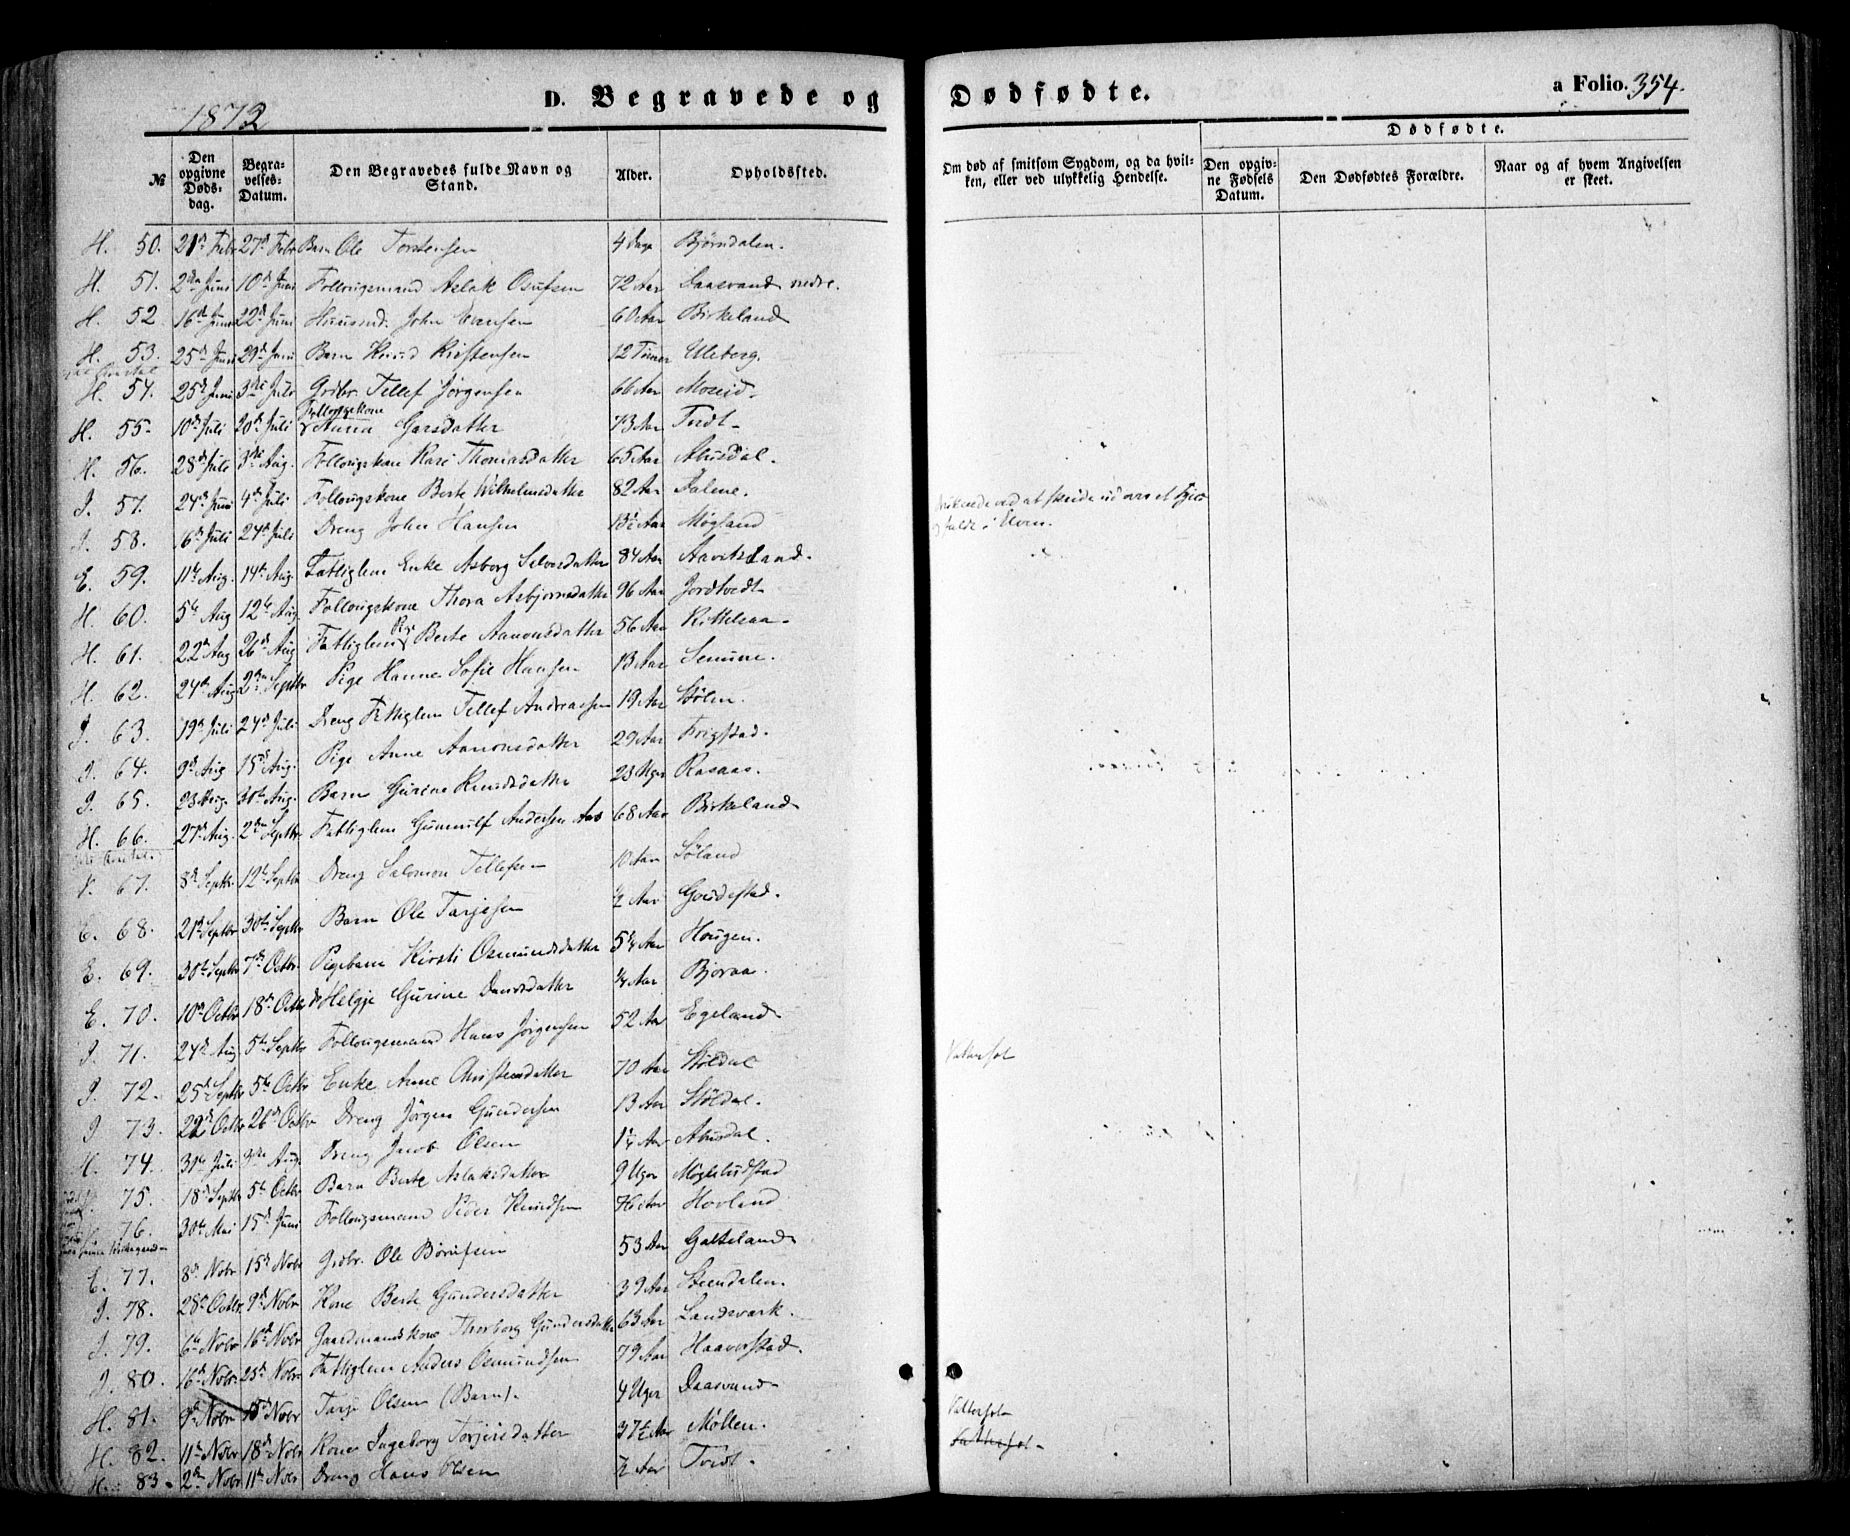 1872
D. Begravede og Dødfødte.
a Folio. 354.
№
Den opgivne Døds-dag.
Begra-velses-Datum.
Den Begravedes fulde Navn og Stand.
Alder.
Opholdssted.
Om død af smitsom Sygdom, og da hvil-ken, eller ved ulykkelig Hendelse.
Dødfødte.
Den opgiv-ne Fødsels Datum.
Den Dødfødtes Forældre.
Naar og af hvem Angivelsen er skeet.
H. 50. 21de Febr 27de Febr Barn Ole Torstensen 4 dage Bjørndalen.
H. 51. 2den Juni 10de Juni Follougsmand Aslak Osufsen 72 Aar Daasvand nedre.
H. 52 16de Juni 22de Juni Huusmd. John Evensen 60 Aar Birkeland
H. 53. 25de Juni 29de Juni Barn Knud Kristensen 12 Timer Uleberg.
H. 54. 25de Juni 3die Juli Grdbr. Tellef Jørgensen 66 Aar Moseid.
H. 55. 10de Juli 20de Juli Follougskone Anna Garsdatter 73 Aar Tvedt
H. 56. 28de Juli 3die Aug. Follougskone Kari Thomasdatter 65 Aar Abusdal.
I. 57. 24de Juni 4de Juli Follougskone Berte Wilhelmsdatter 82 Aar Dalene.
I. 58. 16de Juli 24de Juli Dreng John Hansen 13½ Aar Møgland
druknede ved at skride ud over et Fjeld
og falde i Elven.
E. 59. 11te Aug. 14de Aug. Fattiglem Enke Asborg Selvesdatter 84 Aar Aavitsland.
H. 60. 5te Aug 12te Aug Follougskone Thora Asbjørnsdatter 96 Aar Jordtvedt
H. 61. 22de Aug 26de Aug Fattiglem Pige Berte Aanonsdatter 56 Aar Kittelsaa.
H. 62. 24de Aug 2den Septbr Pige Hanne Sofie Hansen 13 Aar Senum.
I. 63. 19de Juli 24de Juli Dreng Fattiglem Tellef Andreassen 19 Aar Stølen.
I. 64. 9de Aug 15de Aug. Pige Anne Aanonsdatter 29 Aar Frigstad.
I. 65. 23 Aug. 30te Aug. Barn Gurine Knudsdatter 23 Uger Rosaas.
H. 66. 27de Aug. 2den Septbr Fattiglem Gunnulf Andersen Aas 68 Aar Birkeland
67. 8de Septbr. 12te Septbr Dreng Salomon Tellefsen 10 Aar Løland
E. 68. 21de Septbr 30te Septbr Barn Ole Tarjesen ½ Aar Goudestad.
E. 69. 30te Septbr 7de Octbr. Pigebarn Kirsti Osmundsdatter 5¾ Aar Hougen.
E. 70. 10de Octbr 18de Octbr do Helgje Gurine Danielsdatter ¼ Aar Bjoraa.
I. 71. 24de Aug. 5te Septbr Follougsmand Hans Jørgensen 52 Aar Egeland
I. 72. 25de Septbr 5te Octbr Enke Anne Christensdatter 70 Aar Støldal
Vattersot
I. 73. 22de Octbr 26de Octbr Dreng Jørgen Gundersen 13 Aar Støldal.
H. 74. 31te Juli 3die Aug. Dreng Jacob Olsen 1¼ Aar Abusdal.
75. 18de Septbr 5te Octbr Barn Berte Aslaksdatter 9 Uger Møglebustad
76. 30te Mai 15de Juni Follougsmand Peder Knudsen 76 Aar Hovland
E. 77. 8de Nobr 15de Nobr Grdbr. Ole Børufsen 53 Aar Galteland
I. 78. 28de Octbr. 9de Nobr. Kone Berte Gundersdatter 39 Aar Steendalen.
I. 79. 6te Nobr 16de Nobr Gaardmandskone Thorborg Gundersdatter 63 Aar Landsværk.
I. 80. 16de Nobr. 25de Nobr. Fattiglem Anders Osmundsen 79 Aar Haaverstad.
H. 81. Nobr Nobr Tarje Olsen (Barn). 4 Uger Daasvand
H. 82. 11te Nobr 18de Nobr Kone Ingeborg Torjusdatter 37½ Aar Møllen.
Vattersot
H. 83. 2den Nobr. 11te Nobr Dreng Hans Olsen ½ Aar Tvedt.